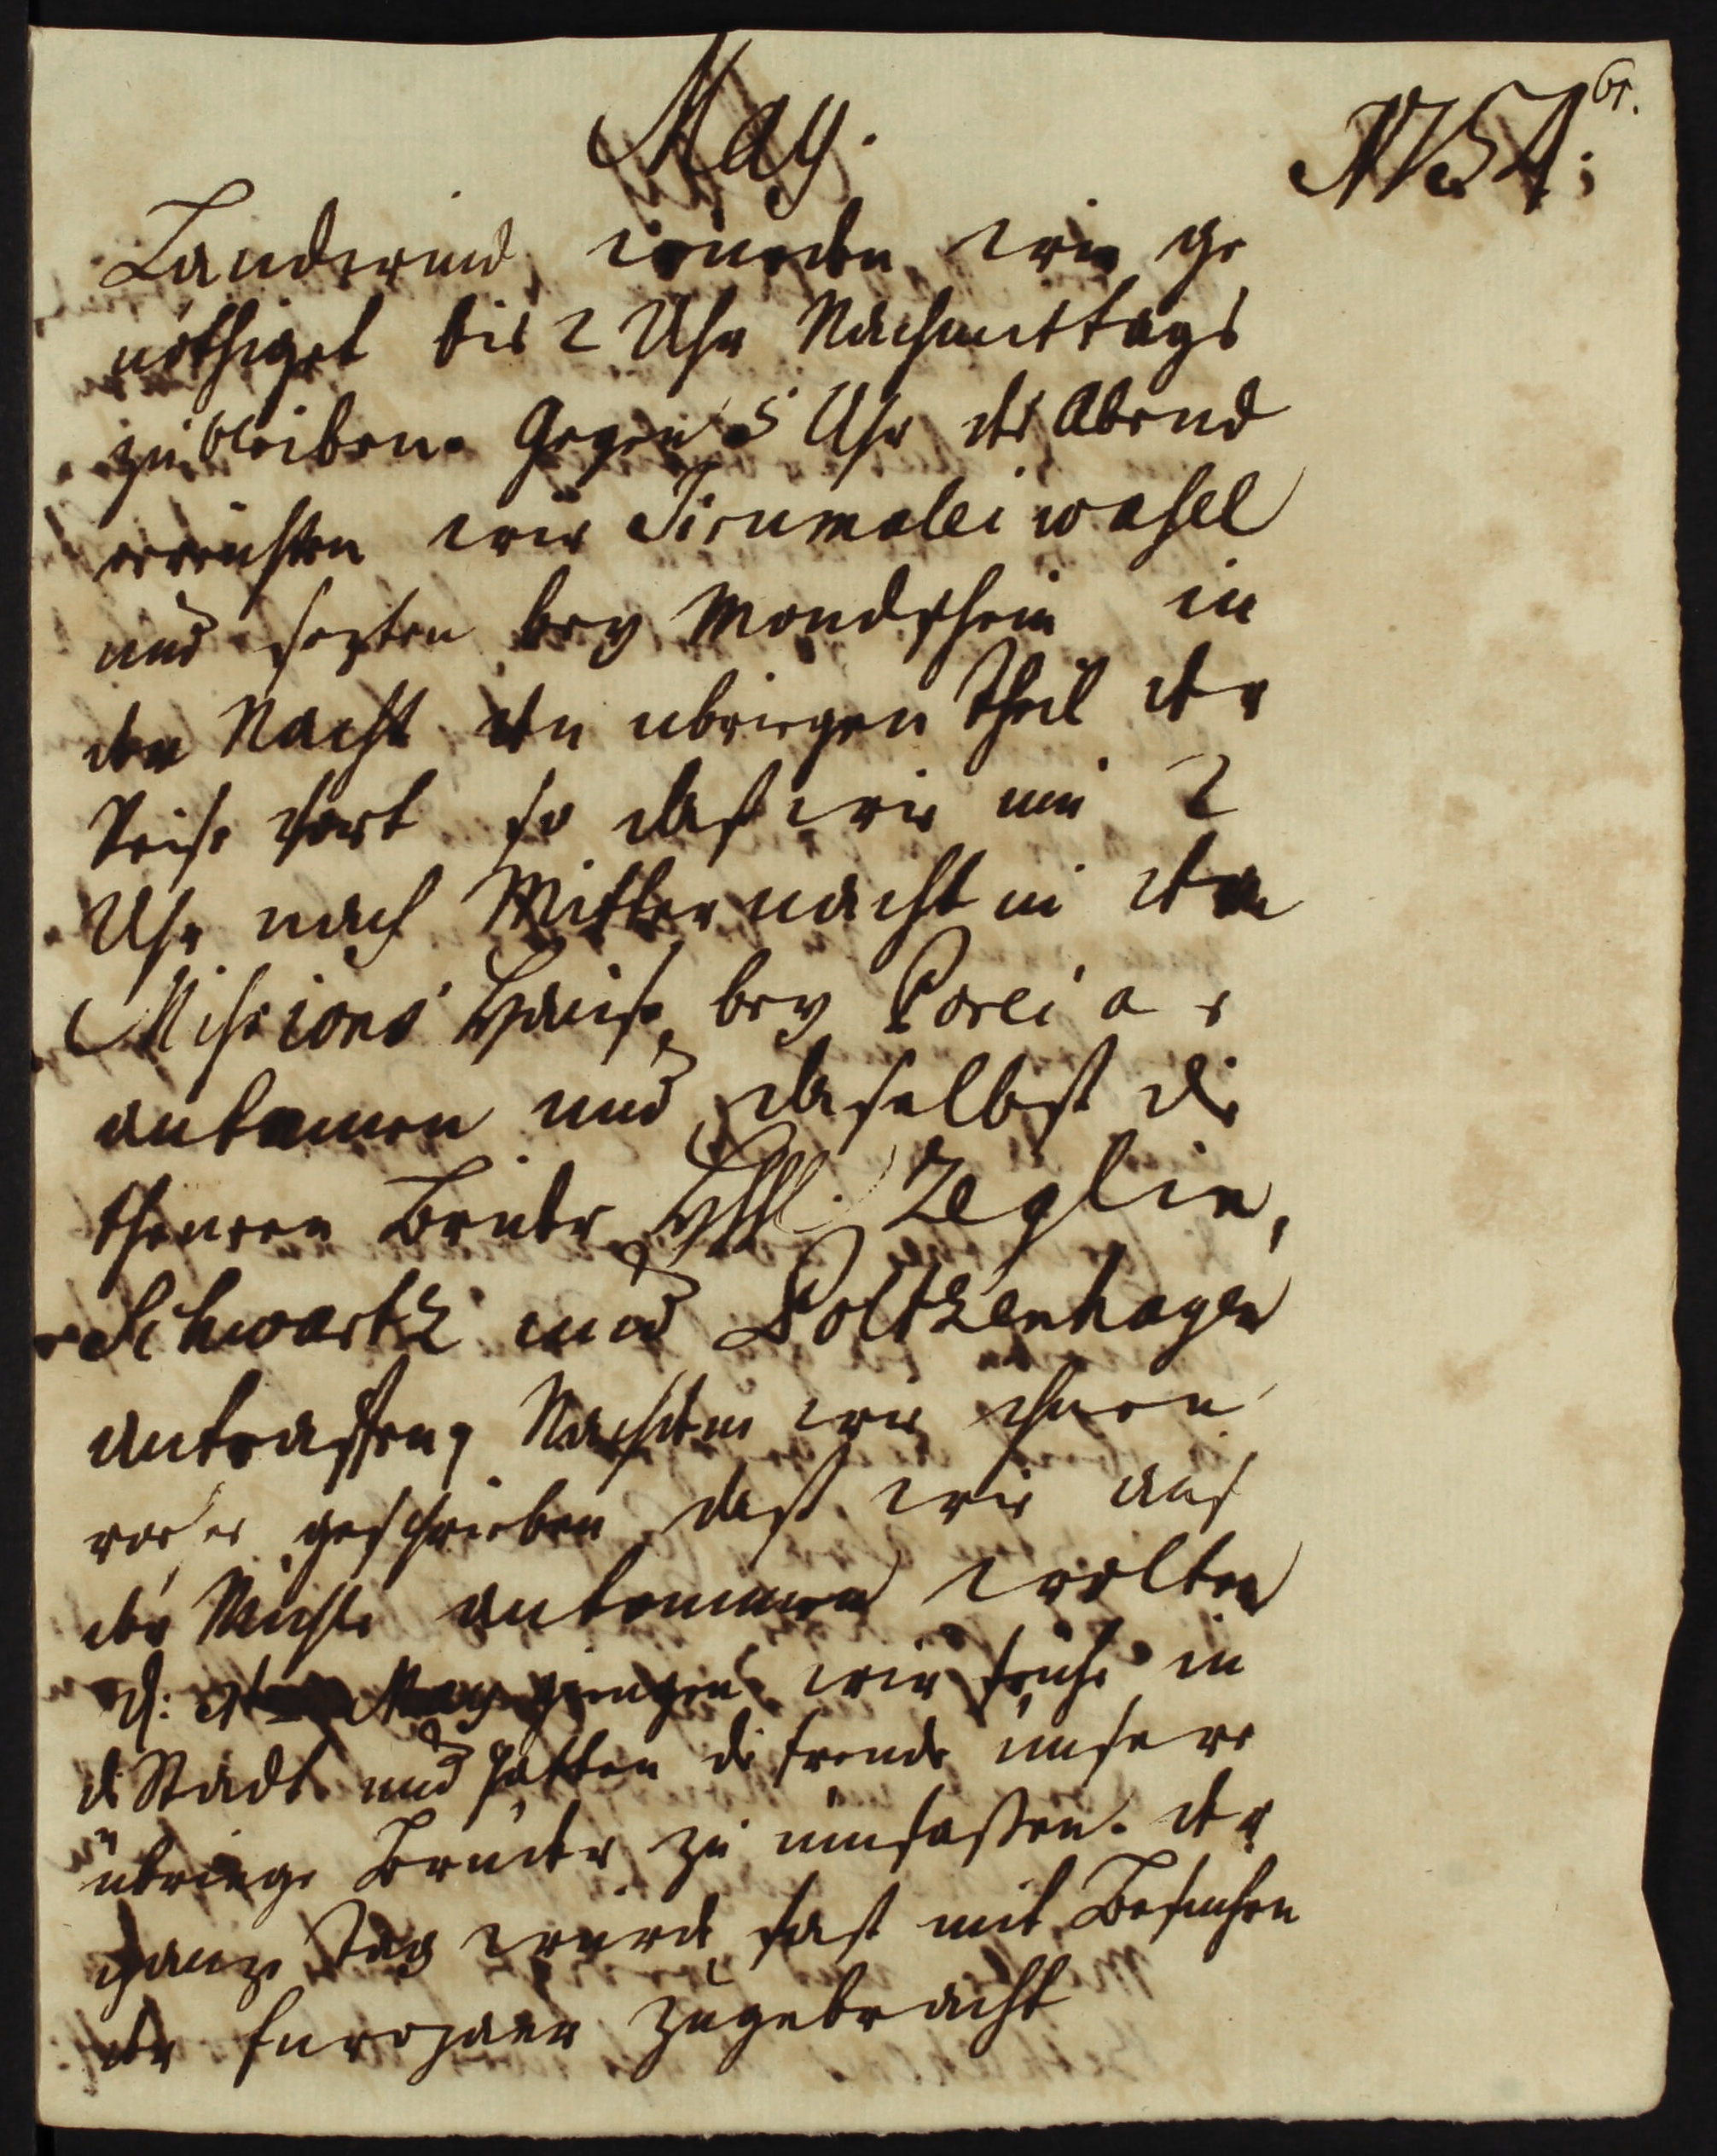 61.
May. 1754.
Landwind wurden wir ge
nöthiget bis 2 Uhr Nachmittags
zu bleiben. Gegen 5 Uhr des Abend
erreichten wir Tirumaleiwasel
und sezten bey Mondschein in
der Nacht den ubrigen Theil der
Reise fort so daß wir um 2
Uhr nach Mitternacht in dem
Missions Hause bey Poreiar
ankamen und daselbst die
theuren Brüder HHl. Zeglin,
Schwartz und Poltzenhagen
antraffen, Nachdem wir ihnen
vorher geschrieben daß wir auf
die Nacht ankommen wolten
d: May giengen wir frühe in
di Stadt und hatten di freude unsere
übrige Brüder zu umfaßen. der
ganze Tag wurde fast mit Besuchen
der Europaer zugebracht